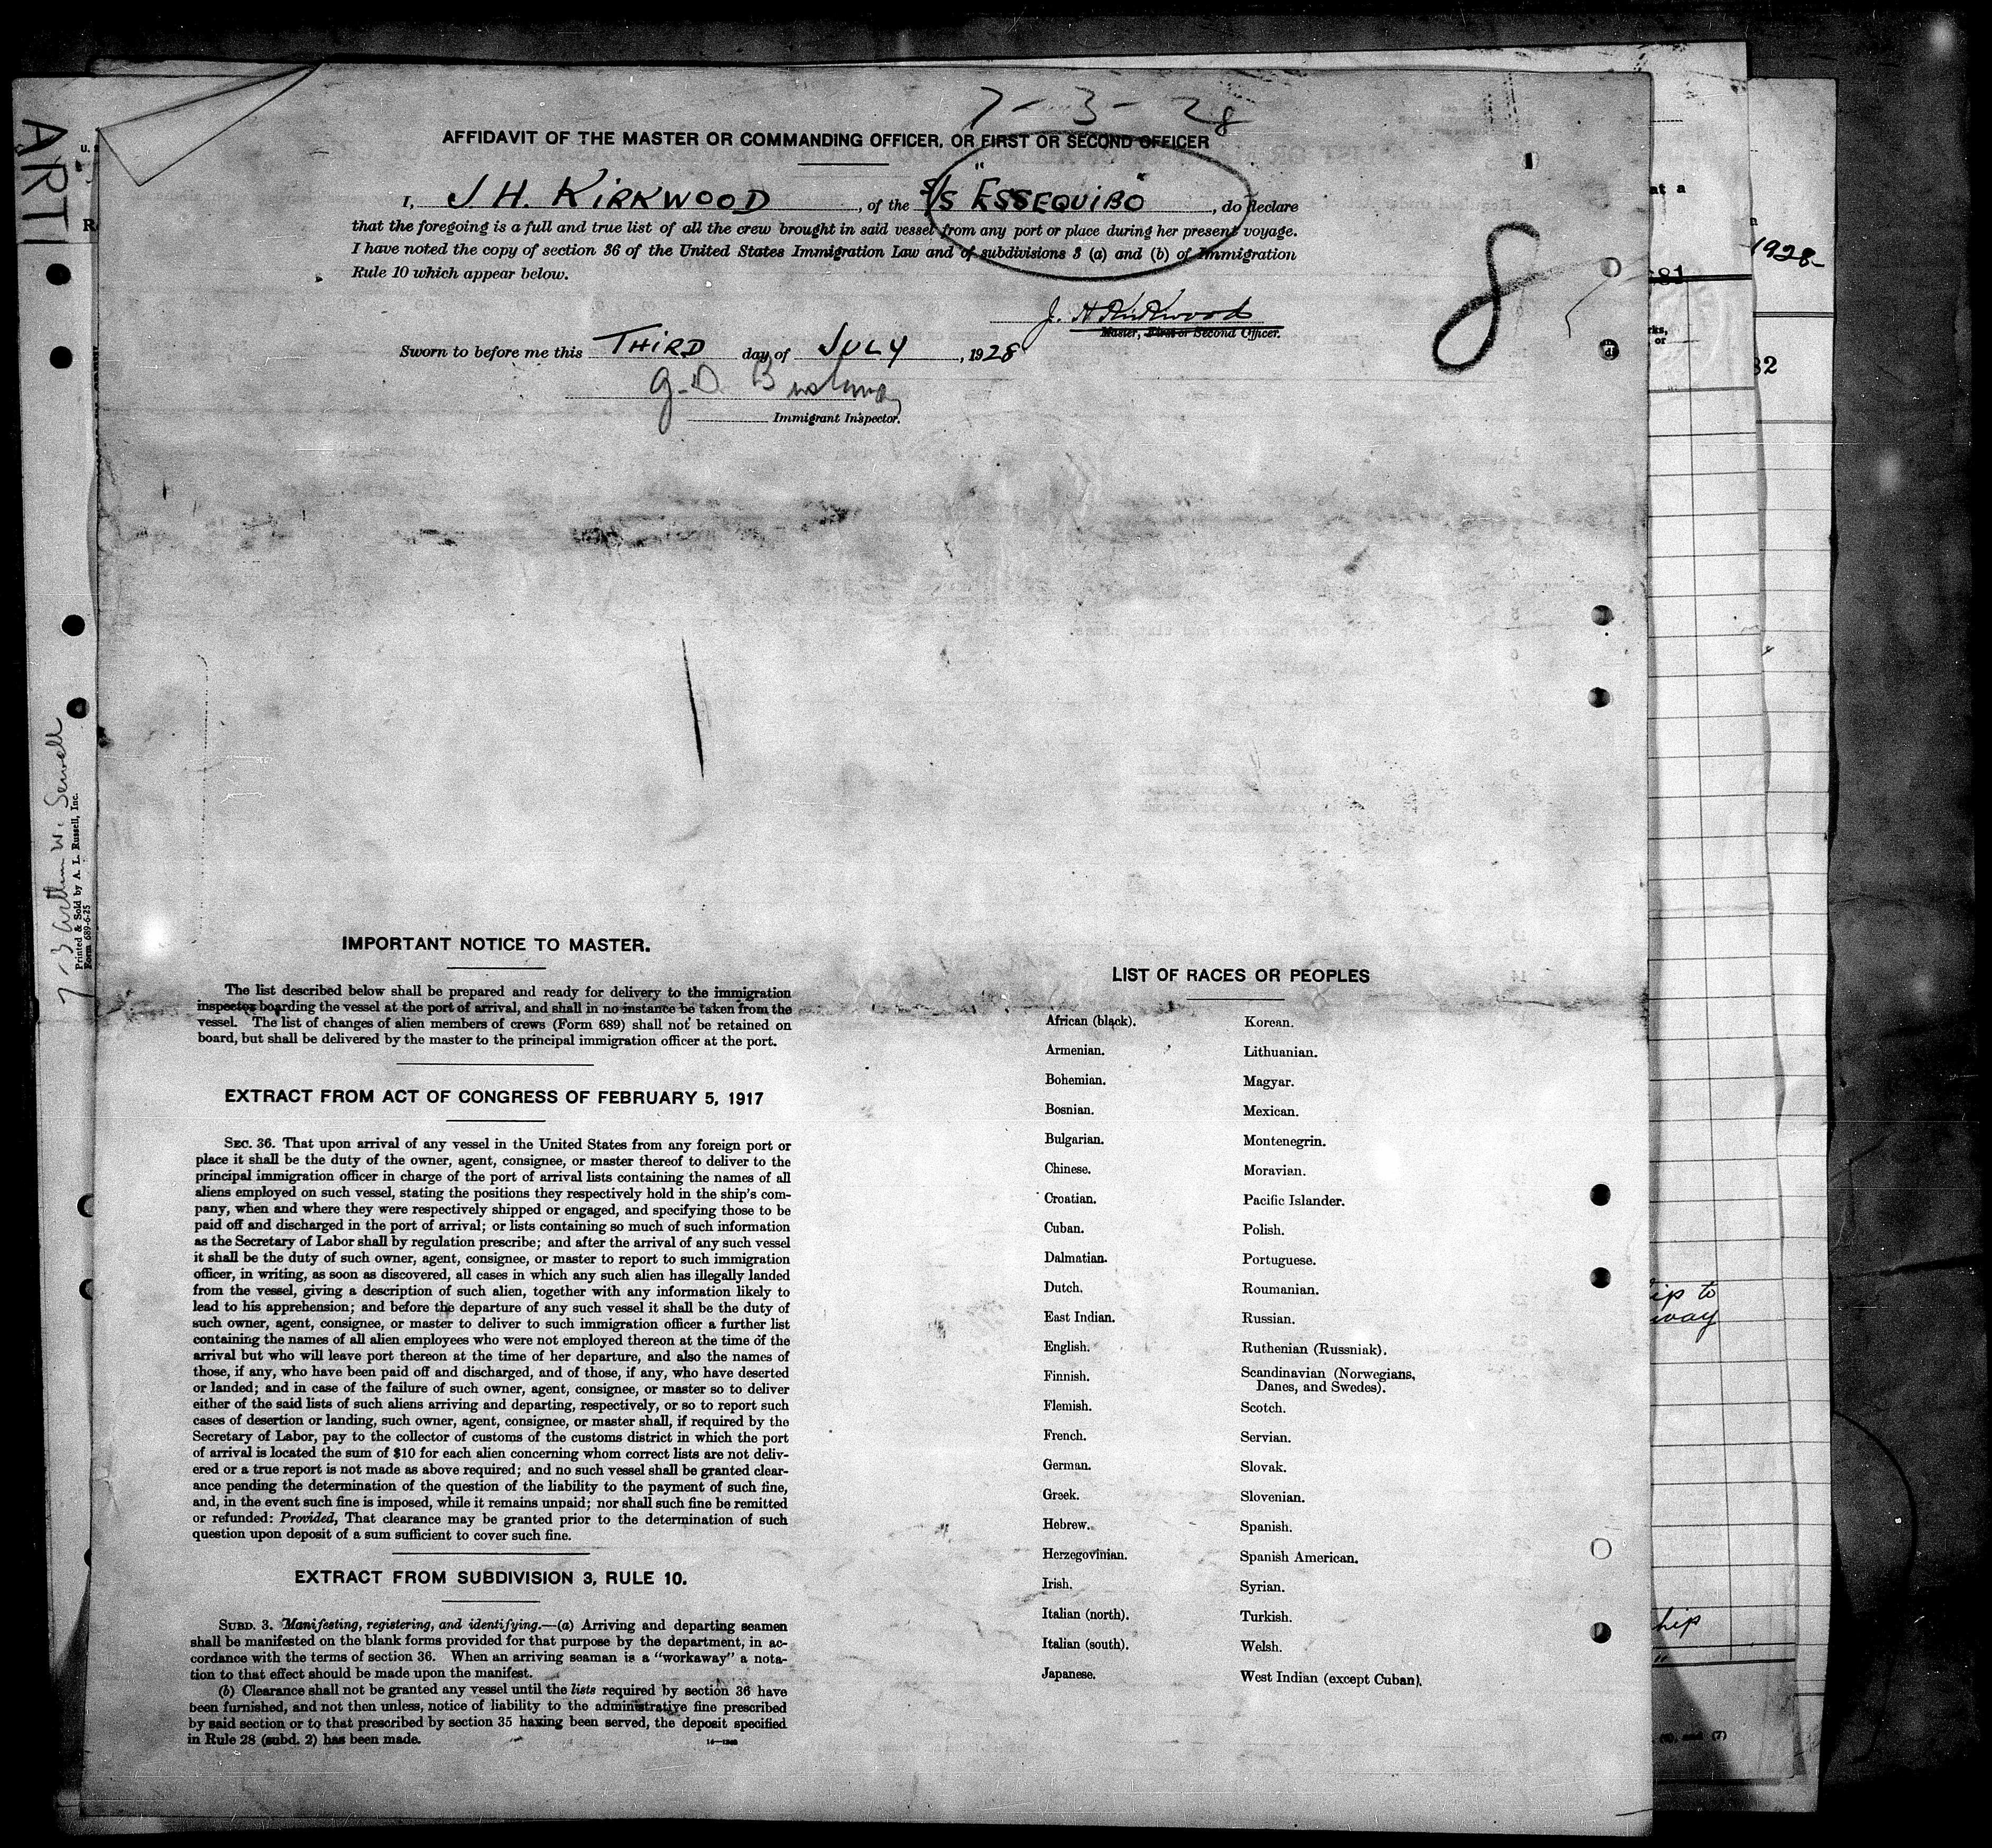 7-3-28
AFFIDAVIT OF THE MASTER OR COMMANDING OFFICER, OR FIRST OR SECOND OFFICER
I, J H. KIRKWOOD, of the S/S "ESSEQUIBO", do declare
that the foregoing is a full and true list of all the crew brought in said vessel from any port or place during her present voyage.
I have noted the copy of section 36 of the United States Immigration Law and of subdivisions 3 (a) and (b) of Immigration
Rule 10 which appear below.
8
J. H Kirkwood
Master, First or Second Officer.
Sworn to before me this THIRD day of JULY, 1928
G. D.
Immigrant Inspector.
IMPORTANT NOTICE TO MASTER.
The list described below shall be prepared and ready for delivery to the immigration
inspector boarding the vessel at the port of arrival, and shall in no instance be taken from the
vessel. The list of changes of alien members of crews (Form 689) shall not be retained on
board, but shall be delivered by the master to the principal immigration officer at the port.
EXTRACT FROM ACT OF CONGRESS OF FEBRUARY 5, 1917
SEC. 36. That upon arrival of any vessel in the United States from any foreign port or
place it shall be the duty of the owner, agent, consignee, or master thereof to deliver to the
principal immigration officer in charge of the port of arrival lists containing the names of all
aliens employed on such vessel, stating the positions they respectively hold in the ship's com-
pany, when and where they were respectively shipped or engaged, and specifying those to be
paid off and discharged in the port of arrival; or lists containing so much of such information
as the Secretary of Labor shall by regulation prescribe; and after the arrival of any such vessel
it shall be the duty of such owner, agent, consignee, or master to report to such immigration
officer, in writing, as soon as discovered, all cases in which any such alien has illegally landed
from the vessel, giving a description of such alien, together with any information likely to
lead to his apprehension; and before the departure of any such vessel it shall be the duty of
such owner, agent, consignee, or master to deliver to such immigration officer a further list
containing the names of all alien employees who were not employed thereon at the time of the
arrival but who will leave port thereon at the time of her departure, and also the names of
those, if any, who have been paid off and discharged, and of those, if any, who have deserted
or landed; and in case of the failure of such owner, agent, consignee, or master so to deliver
either of the said lists of such aliens arriving and departing, respectively, or so to report such
cases of desertion or landing, such owner, agent, consignee, or master shall, if required by the
Secretary of Labor, pay to the collector of customs of the customs district in which the port
of arrival is located the sum of $10 for each alien concerning whom correct lists are not deliv-
ered or a true report is not made as above required; and no such vessel shall be granted clear-
ance pending the determination of the question of the liability to the payment of such fine,
and, in the event such fine is imposed, while it remains unpaid; nor shall such fine be remitted
or refunded: Provided, That clearance may be granted prior to the determination of such
question upon deposit of a sum sufficient to cover such fine.
EXTRACT FROM SUBDIVISION 3, RULE 10.
SUBD. 3. Manifesting, registering, and identifying.—(a) Arriving and departing seamen
shall be manifested on the blank forms provided for that purpose by the department, in ac-
cordance with the terms of section 36. When an arriving seaman is a "workaway" a nota-
tion to that effect should be made upon the manifest.
(b) Clearance shall not be granted any vessel until the lists required by section 36 have
been furnished, and not then unless, notice of liability to the administrative fine prescribed
by said section or to that prescribed by section 35 having been served, the deposit specified
in Rule 28 (subd. 2) has been made.
LIST OF RACES OR PEOPLES
African (black). Korean.
Armenian. Lithuanian.
Bohemian. Magyar.
Bosnian. Mexican.
Bulgarian. Montenegrin.
Chinese. Moravian.
Croatian. Pacific Islander.
Cuban. Polish.
Dalmatian. Portuguese.
Dutch. Roumanian.
East Indian. Russian.
English. Ruthenian (Russniak).
Finnish. Scandinavian (Norwegians,
Danes, and Swedes).
Flemish. Scotch.
French. Servian.
German. Slovak.
Greek. Slovenian.
Hebrew. Spanish.
Herzegovinian. Spanish American.
Irish. Syrian.
Italian (north). Turkish.
Italian (south). Welsh.
Japanese. West Indian (except Cuban).
ARTI
7-3 Arthur W. Sewell
Printed & Sold by A. L. Russell, Inc.
Form 689-6-25
at a
1928-
81
32
ip to
way
hip
and (7)